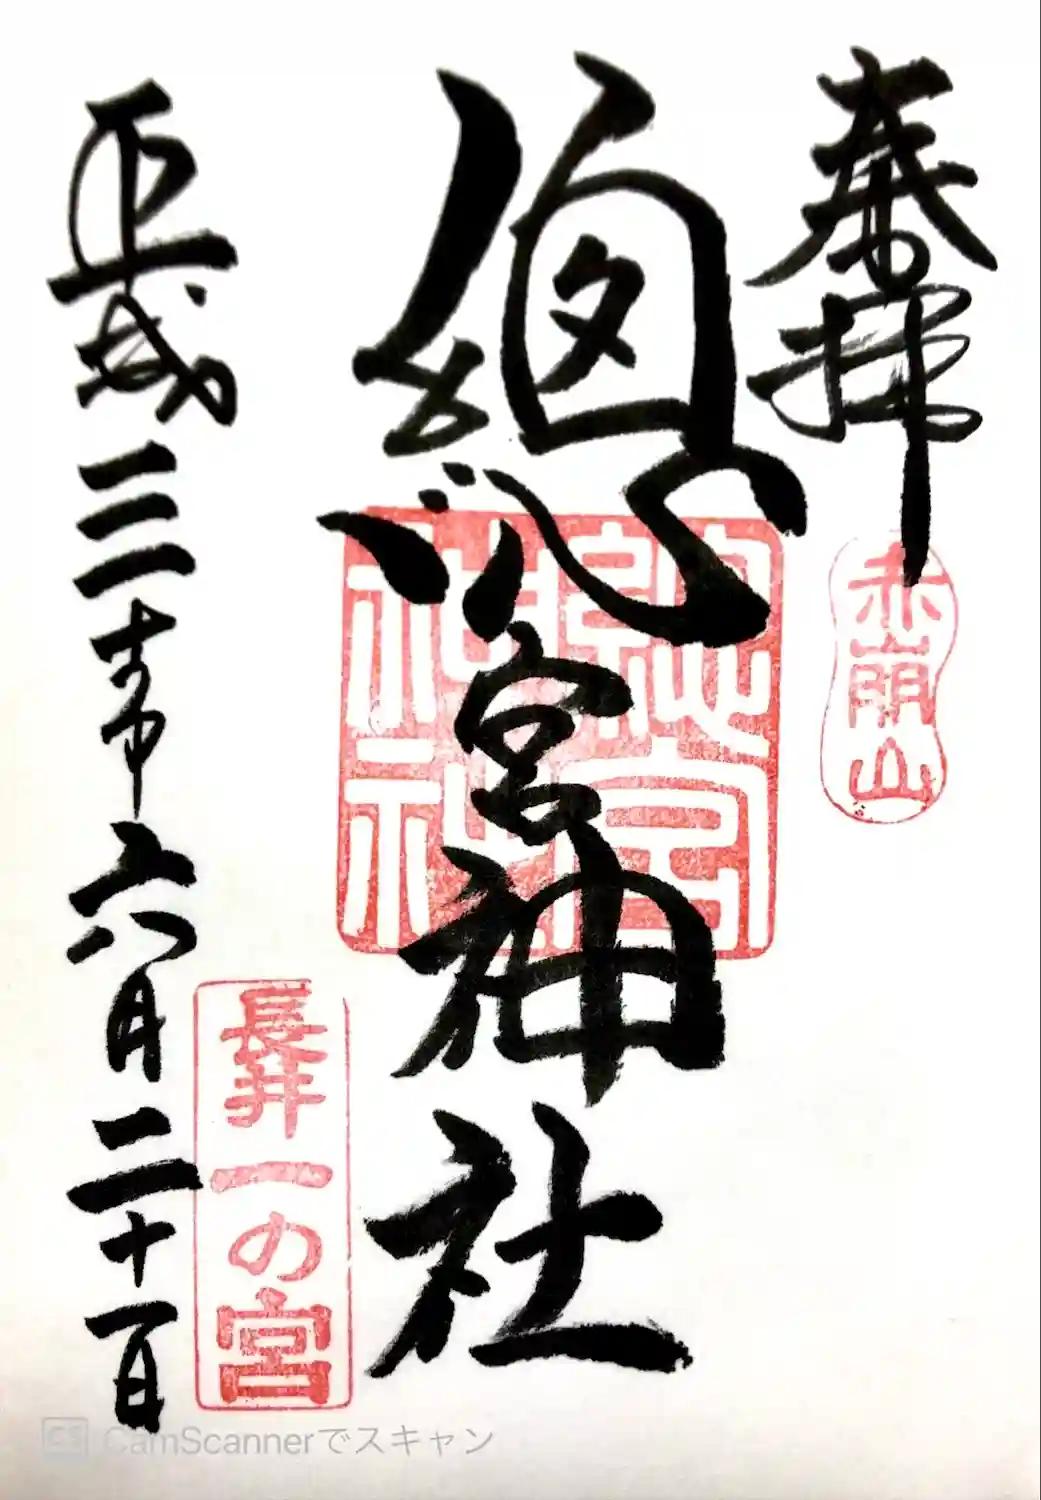 奉拝
赤崩山
總宮神社
總宮
神社
長井一の宮
平成三十年六月二十一日
CS CamScannerでスキャン